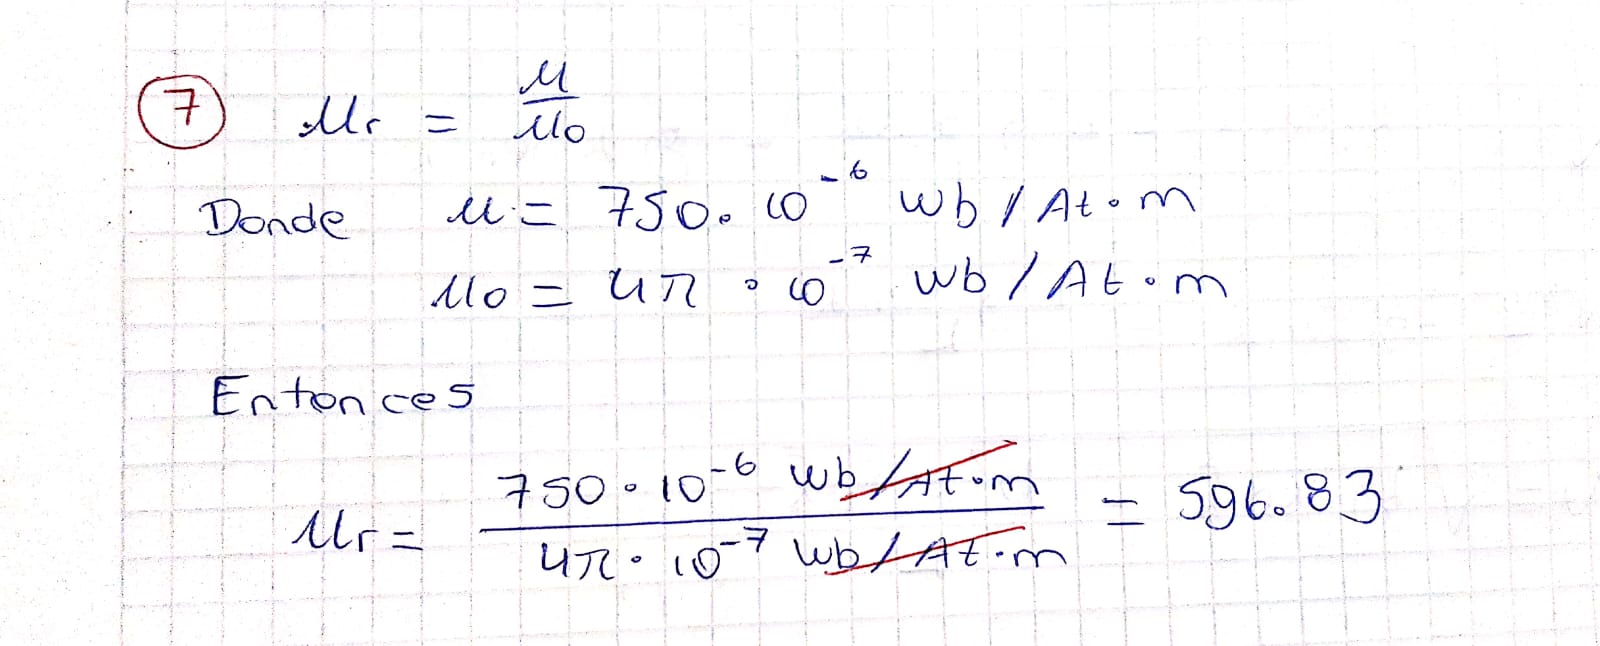 7 μr = μ / μo
Donde μ = 750 · 10⁻⁶ Wb / At · m
μo = 4π · 10⁻⁷ Wb / At · m
Entonces
μr = 750 · 10⁻⁶ Wb / At · m / 4π · 10⁻⁷ Wb / At · m = 596.83